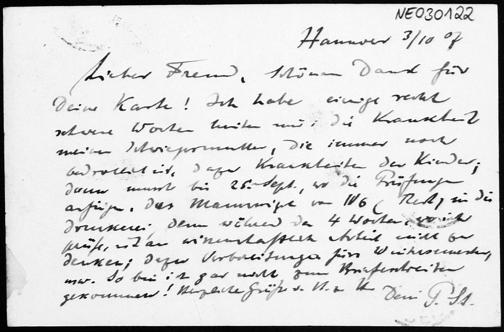 NE030122
Hannover 3/10 07
Lieber Freund, schönen Dank für
Deine Karte! Ich habe einige recht
schwere Wochen hinter mir: die Krankheit
meiner Schwiegermutter, die immer noch
andauert, dazu Krankheiten der Kinder;
dann musst bis 25. Sept., wo die Prüfungen
anfingen, das Manuskript von (Rest) in die
Druckerei, denn während der 4 Wochen, wo ich
prüfe, ist an wissenschaftlich Arbeit nicht zu
denken; dazu Vorbereitungen fürs Wintersemester,
usw. So bin ich gar nicht zum Briefschreiben
gekommen! Herzliche Grüße v. H. z. H. Dein P. St.